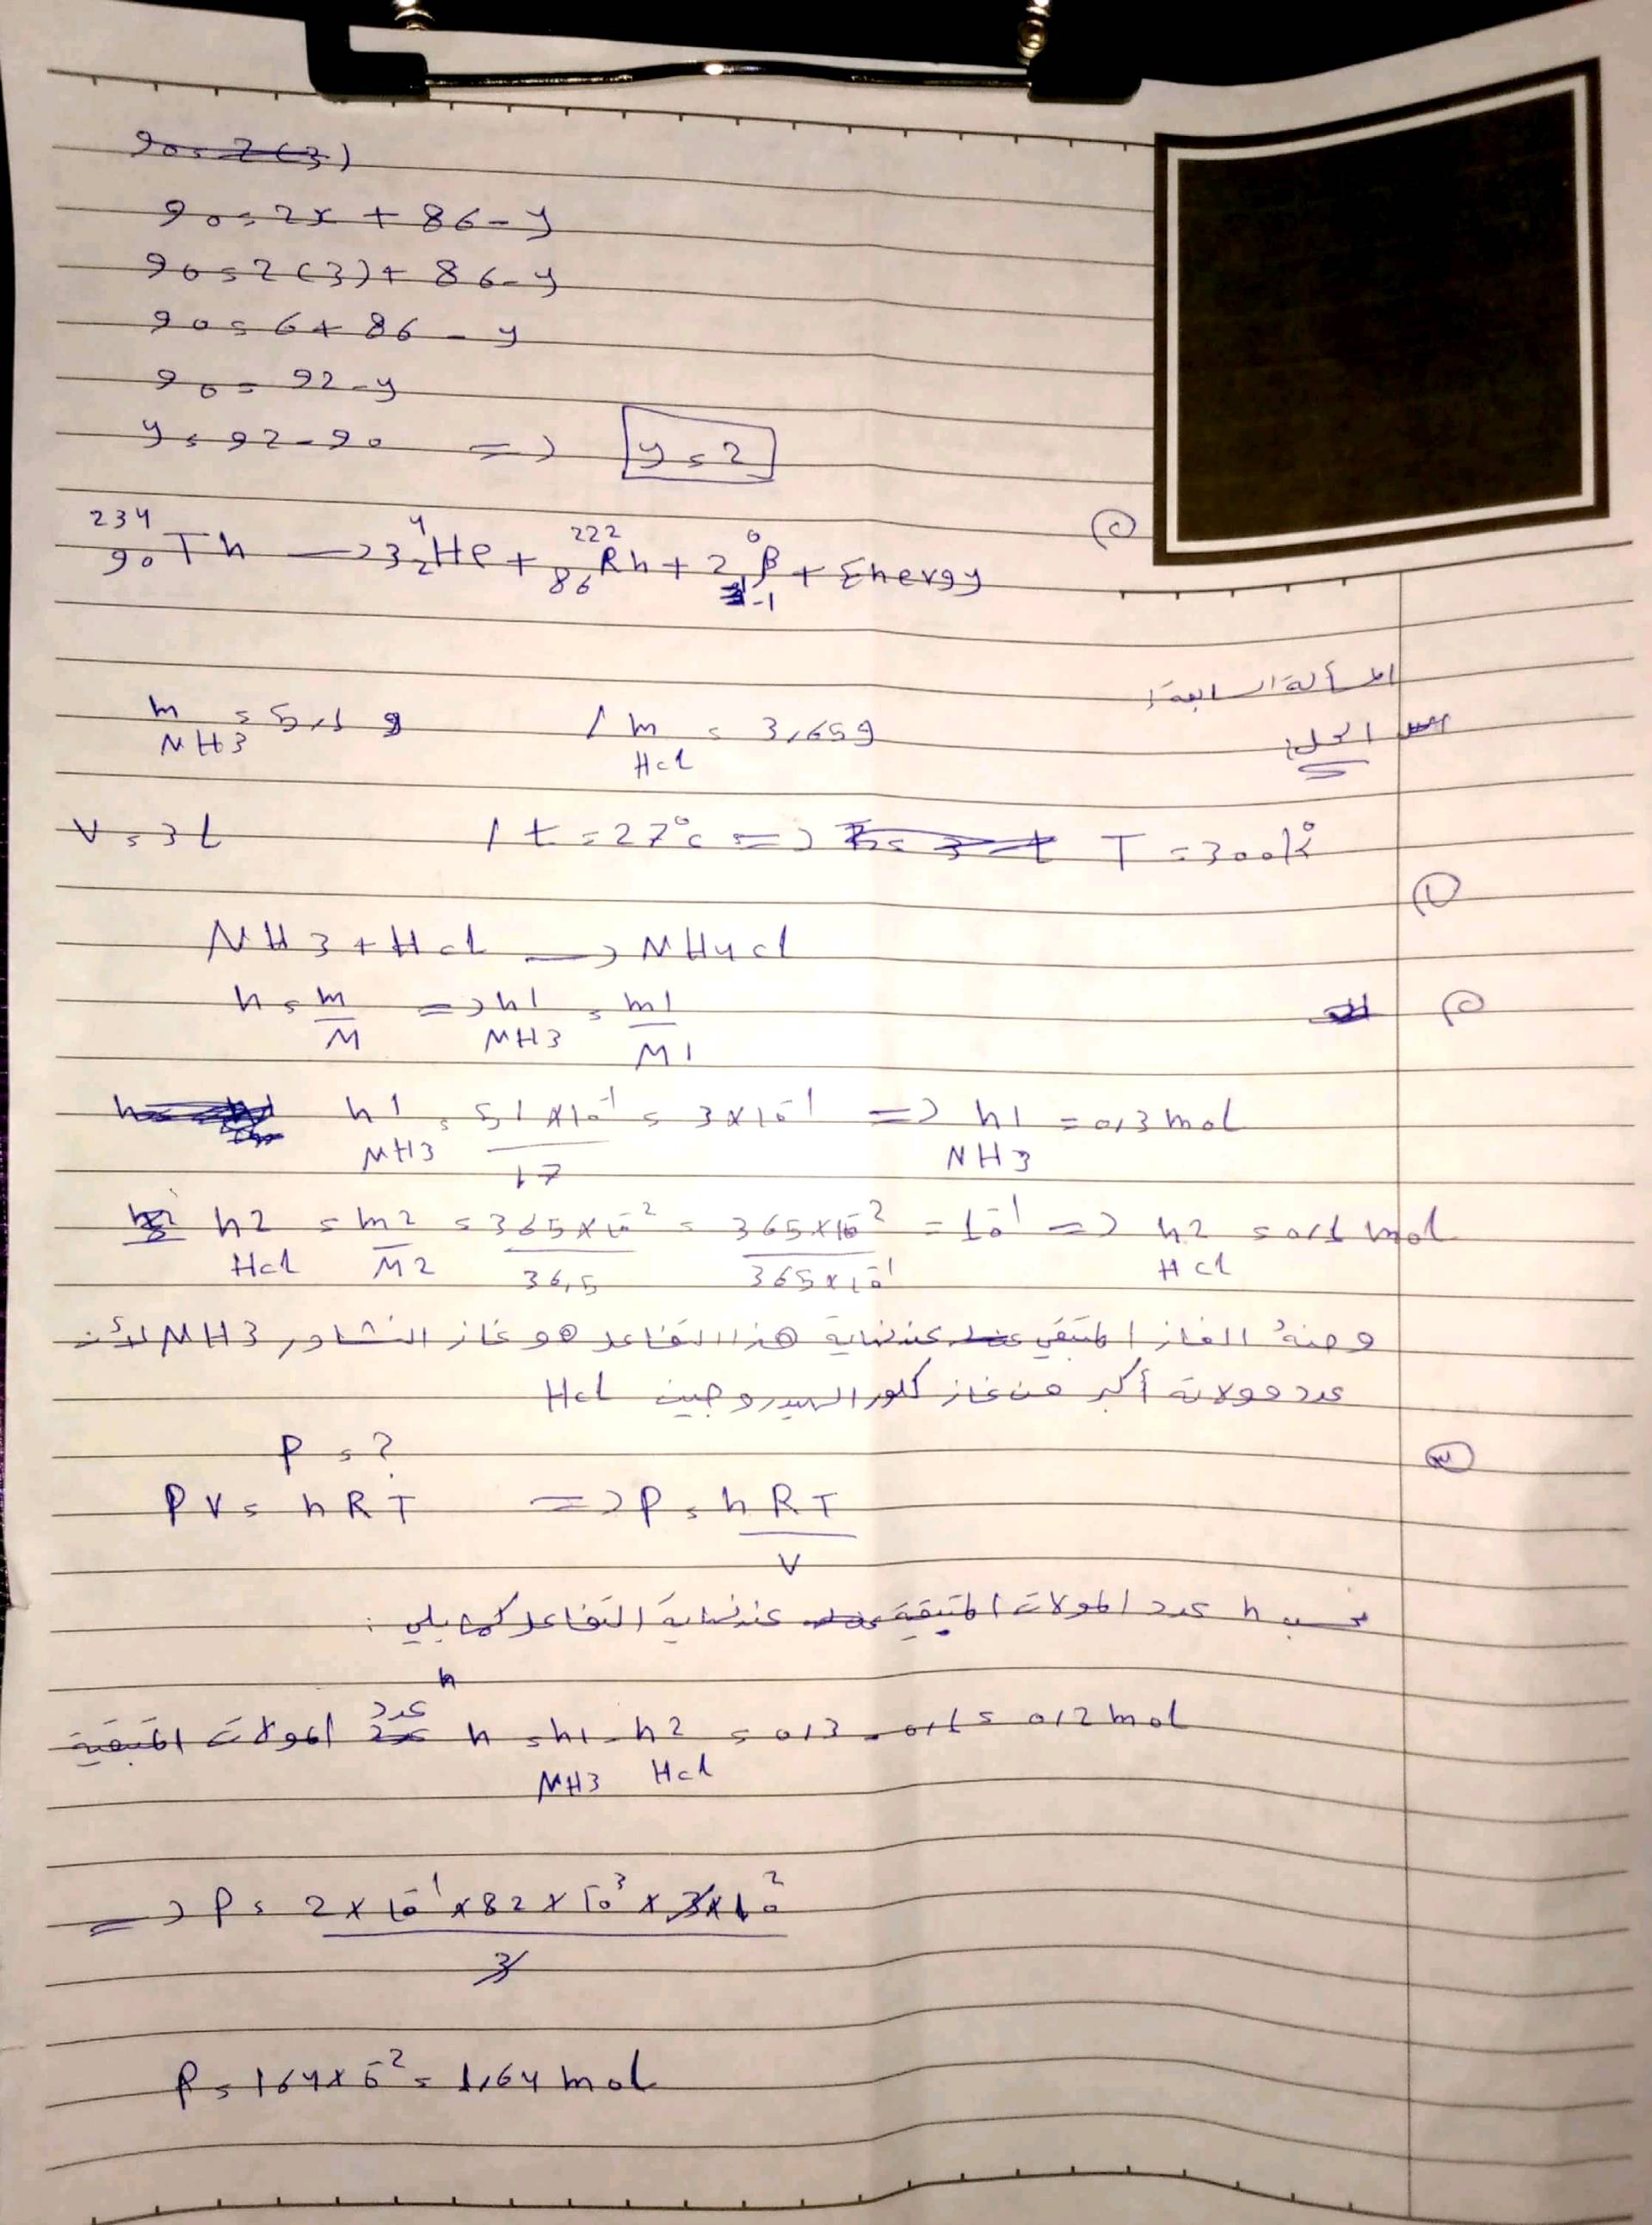 90 = 2(3)
90 = 2x + 86 - y
90 = 2(3) + 86 - y
90 = 6 + 86 - y
90 = 92 - y
y = 92 - 90 => y = 2
②
²³⁴₉₀Th → 3 ⁴₂He + ²²²₈₆Rn + 2 ⁰₋₁β + Energy
المسألة السابعة:
الحل:
m NH3 = 5,1 g / m Hcl = 3,65 g
V = 3 L / t = 27°c => T = 300 K°
①
NH3 + Hcl → NH4cl
②
n = m/M => n1 NH3 = m1/M1
n1 NH3 = 51×10⁻¹/17 = 3×10⁻¹ => n1 NH3 = 0,3 mol
n2 Hcl = m2/M2 = 365×10⁻²/36,5 = 365×10⁻²/365×10⁻¹ = 10⁻¹ => n2 Hcl = 0,1 mol
ومنه الغاز المتبقي عند نهاية هذا التفاعل هو غاز النشادر NH3 لأن
عدد مولاته أكبر من غاز كلور الهيدروجين Hcl
③
P = ?
PV = nRT => P = nRT/V
نحسب n عدد المولات المتبقية عند نهاية التفاعل كما يلي :
n
عدد المولات المتبقية n = n1 NH3 - n2 Hcl = 0,3 - 0,1 = 0,2 mol
=> P = 2×10⁻¹×82×10⁻³×3×10²/3
P = 164×10⁻² = 1,64 mol